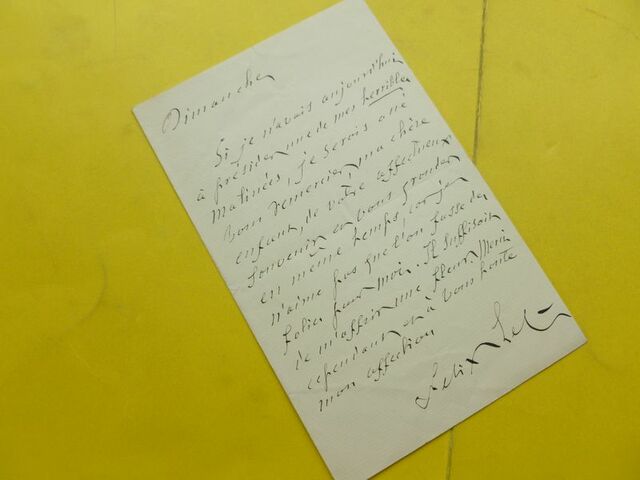 Dimanche
Si je n'avais aujourd'hui
à présider une de mes terribles
Matinées, je serois allé
vous remercier, ma chère
enfant, de votre affectueux
souvenir et vous gronder
en même temps, car je
n'aime pas que l'on fasse des
folies pour moi. Il suffisoit
de m'offrir une fleur. Merci
cependant et à vous toute
mon affection
Félix